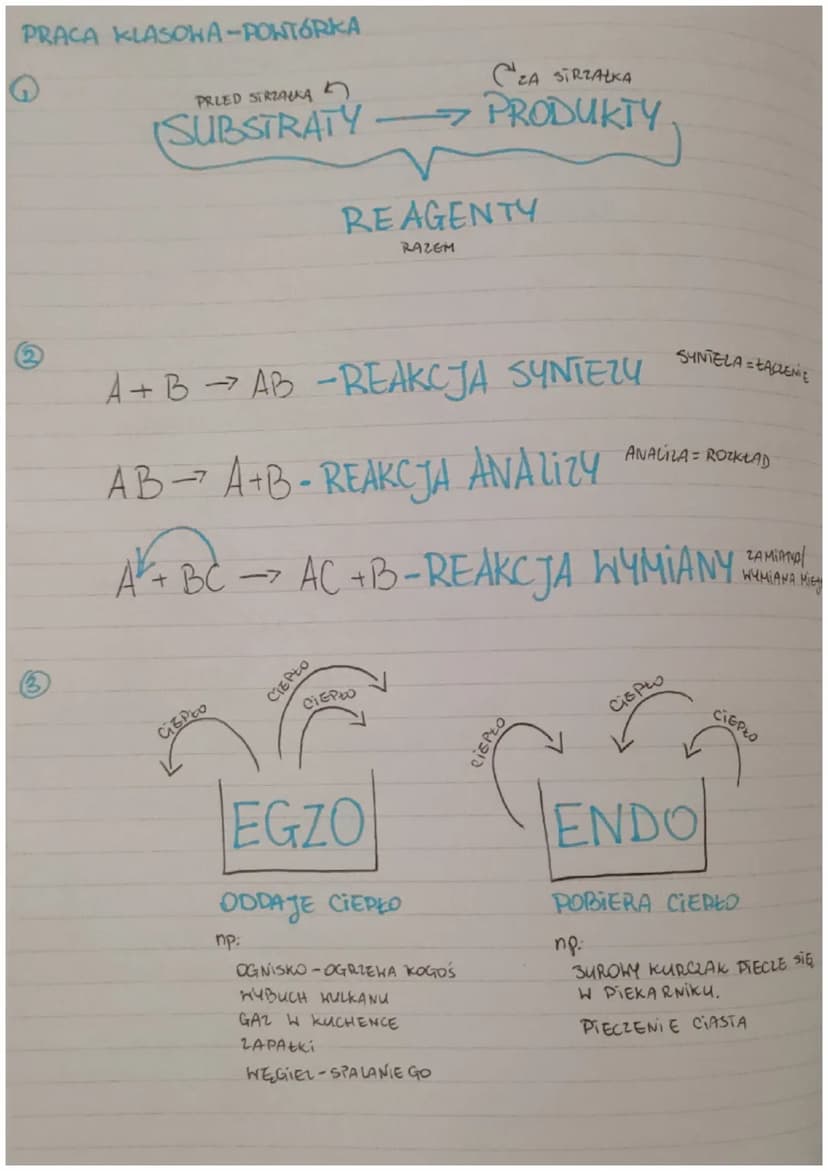 PRACA KLASOWA-POWTÓRKA
1
PRZED STRZAŁKĄ
ZA STRZAŁKĄ
SUBSTRATY → PRODUKTY
REAGENTY
RAZEM
2
A + B → AB - REAKCJA SYNTEZY SYNTEZA = ŁĄCZENIE
AB → A+B - REAKCJA ANALIZY ANALIZA = ROZKŁAD
A + BC → AC + B - REAKCJA WYMIANY ZAMIANA/
WYMIANA MIEJ
3
CIEPŁO CIEPŁO CIEPŁO
CIEPŁO CIEPŁO CIEPŁO
EGZO ENDO
ODDAJE CIEPŁO
np:
OGNISKO - OGRZEWA KOGOŚ
WYBUCH WULKANU
GAZ W KUCHENCE
ZAPAŁKI
WĘGIEL - SPALANIE GO
POBIERA CIEPŁO
np:
SUROWY KURCZAK PIECZE SIĘ
W PIEKARNIKU.
PIECZENIE CIASTA